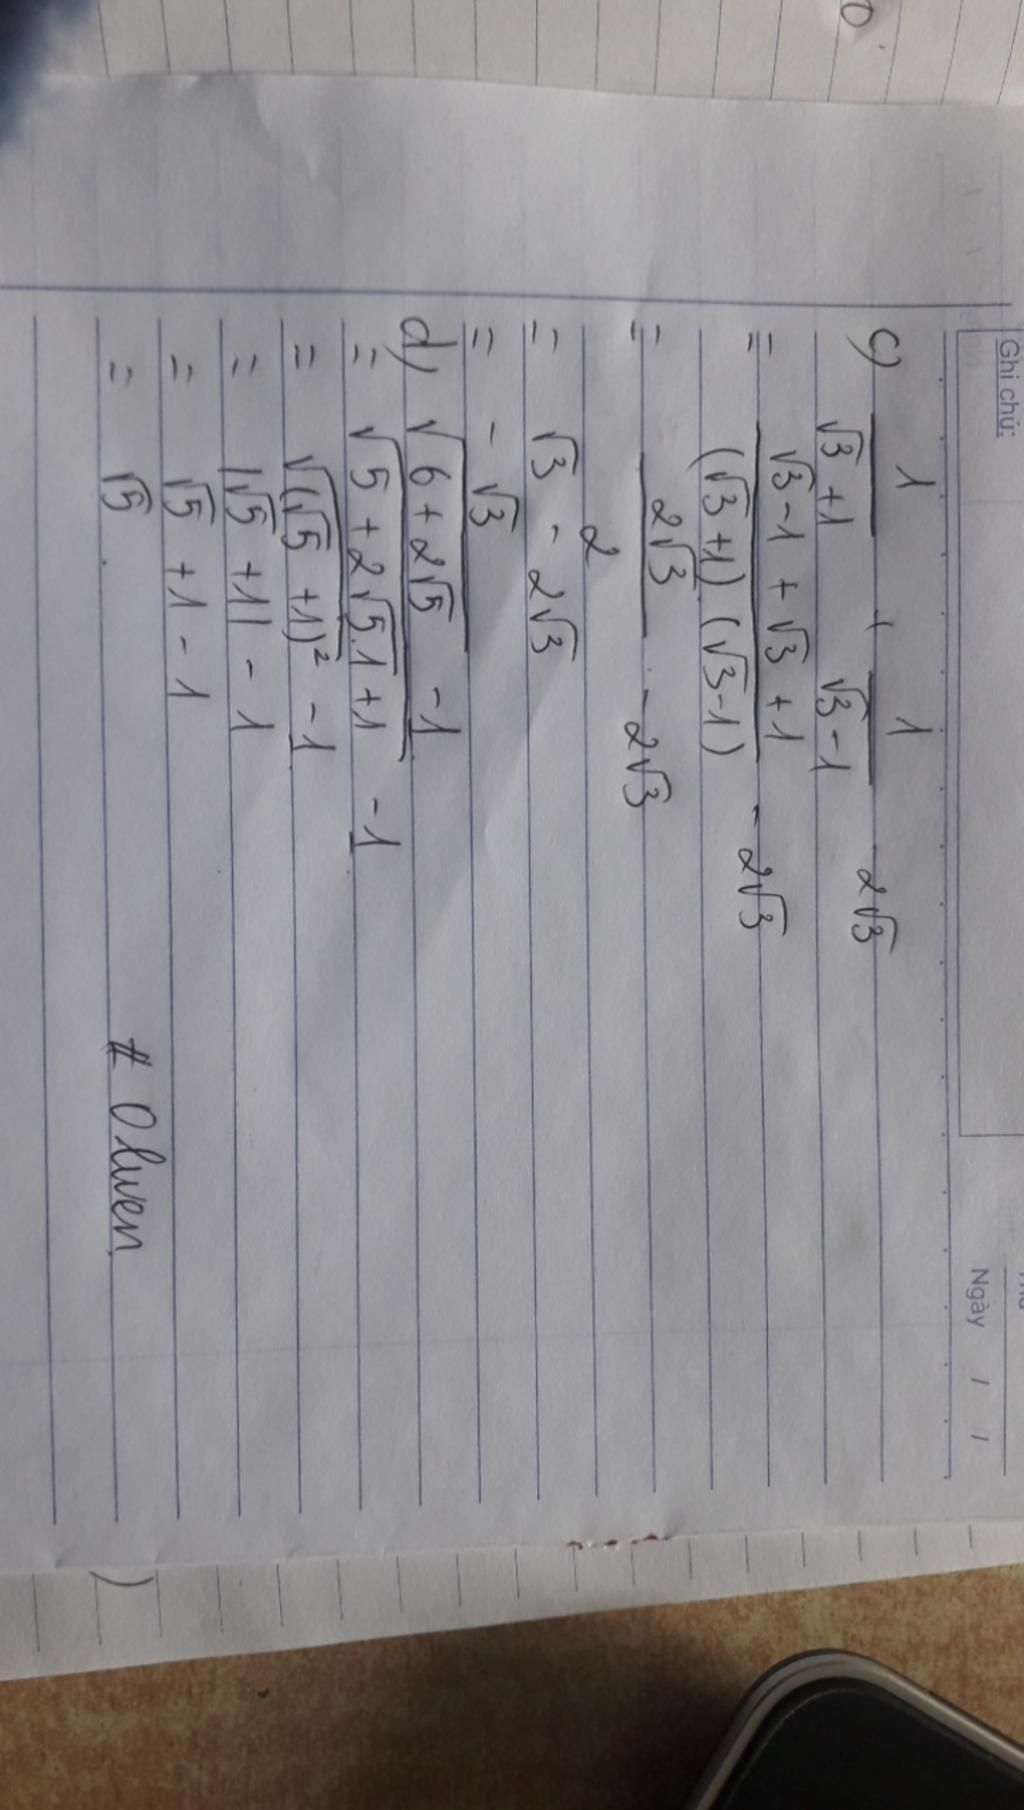 Ghi chú:
Ngày / /
c) 1/(√3 + 1) + 1/(√3 - 1) 2√3
= (√3 - 1 + √3 + 1)/((√3 + 1) (√3 - 1)) - 2√3
= 2√3/2 - 2√3
= √3 - 2√3
= - √3
d) √(6 + 2√5) - 1
= √(5 + 2√5.1 + 1) - 1
= √((√5 + 1)²) - 1
= |√5 + 1| - 1
= √5 + 1 - 1
= √5
# Oliwen